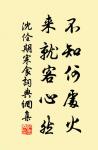 不知何處火
來就客心然
沈佺期寒食詞典網集